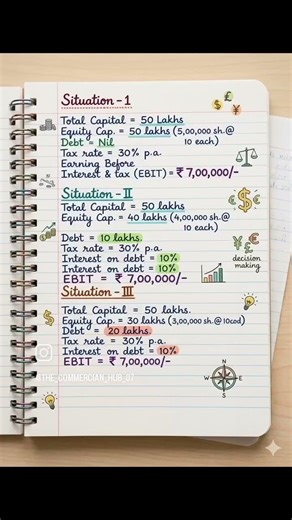 Situation - 1
Total Capital = 50 Lakhs
Equity Cap. = 50 lakhs (5,00,000 sh.@
10 each)
Debt = Nil
Tax rate = 30% p.a.
Earning Before
Interest & tax (EBIT) = ₹ 7,00,000/-
Situation - II
Total Capital = 50 lakhs
Equity Cap. = 40 lakhs (4,00,000 sh.@
10 each)
Debt = 10 lakhs.
Tax rate = 30% p.a.
Interest on debt = 10%
Interest on debt = 10%
EBIT = ₹ 7,00,000/-
decision
making
Situation - III
Total Capital = 50 lakhs.
Equity Cap. = 30 lakhs (3,00,000 sh.@ 10cod)
Debt = 20 lakhs.
Tax rate = 30% p.a.
Interest on debt = 10%
EBIT = ₹ 7,00,000/-
@THE_COMMERCIAN_HUB_07
N
W E
S